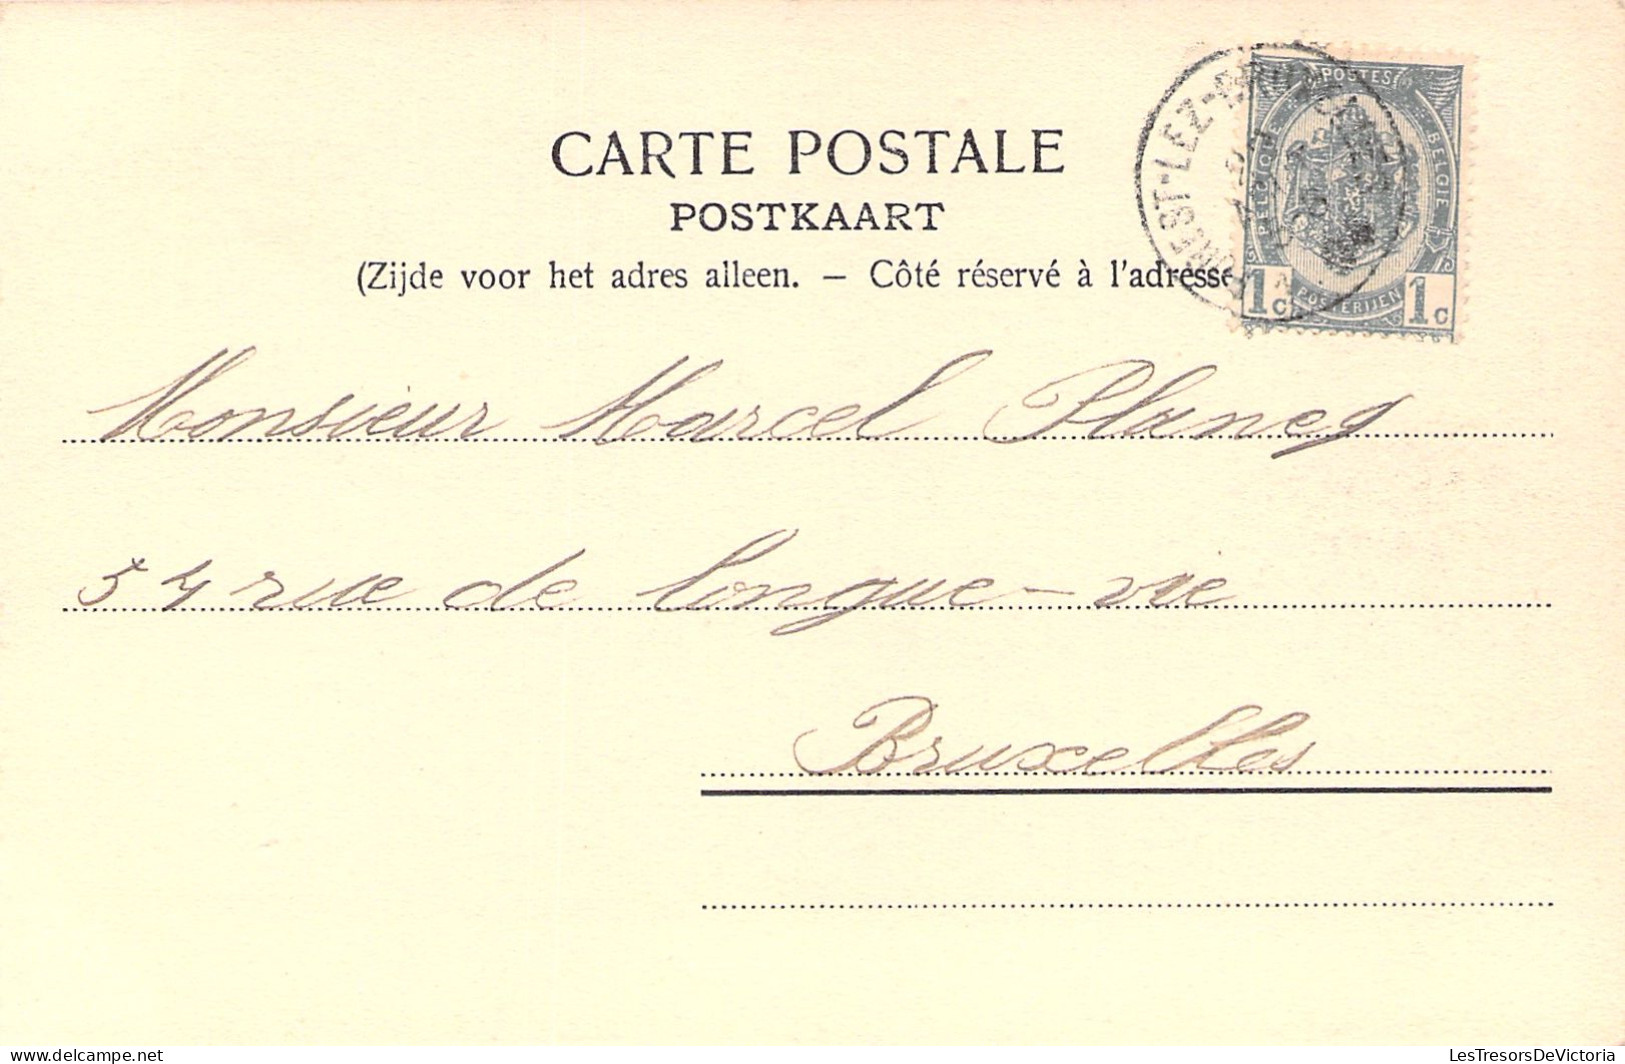 CARTE POSTALE
POSTKAART
(Zijde voor het adres alleen. — Côté réservé à l'adresse
POSTES
BELGIQUE
BELGIE
POSTERIJEN
1c 1c
EST-LEZ-BRUX
Monsieur Marcel Plancq
54 rue de longue-vie
Bruxelles
www.delcampe.net
LesTresorsDeVictoria